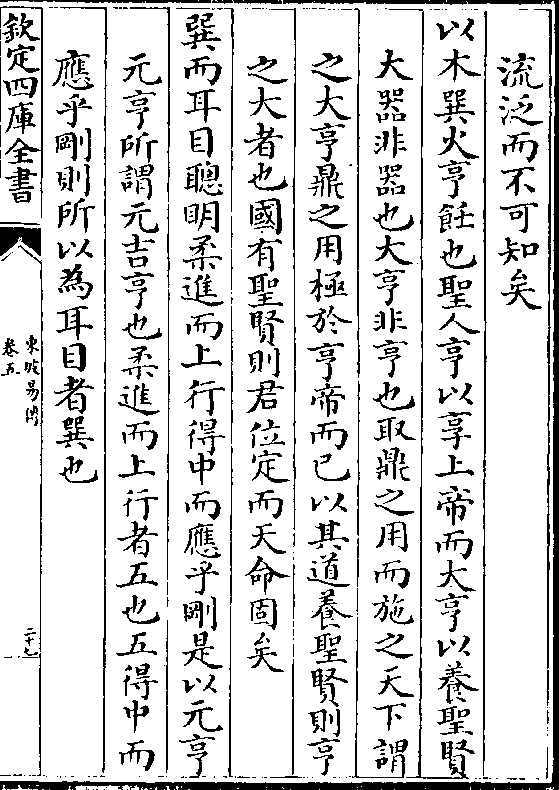 流泛而不可知矣
以木巽火亨飪也聖人亨以享上帝而大亨以養聖賢
大器非器也大亨非亨也取鼎之用而施之天下謂
之大亨鼎之用極於亨帝而已以其道養聖賢則亨
之大者也國有聖賢則君位定而天命固矣
巽而耳目聰明柔進而上行得中而應乎剛是以元亨
元亨所謂元吉亨也柔進而上行者五也五得中而
應乎剛則所以為耳目者巽也
欽定四庫全書
東坡易傳
卷五
二十七